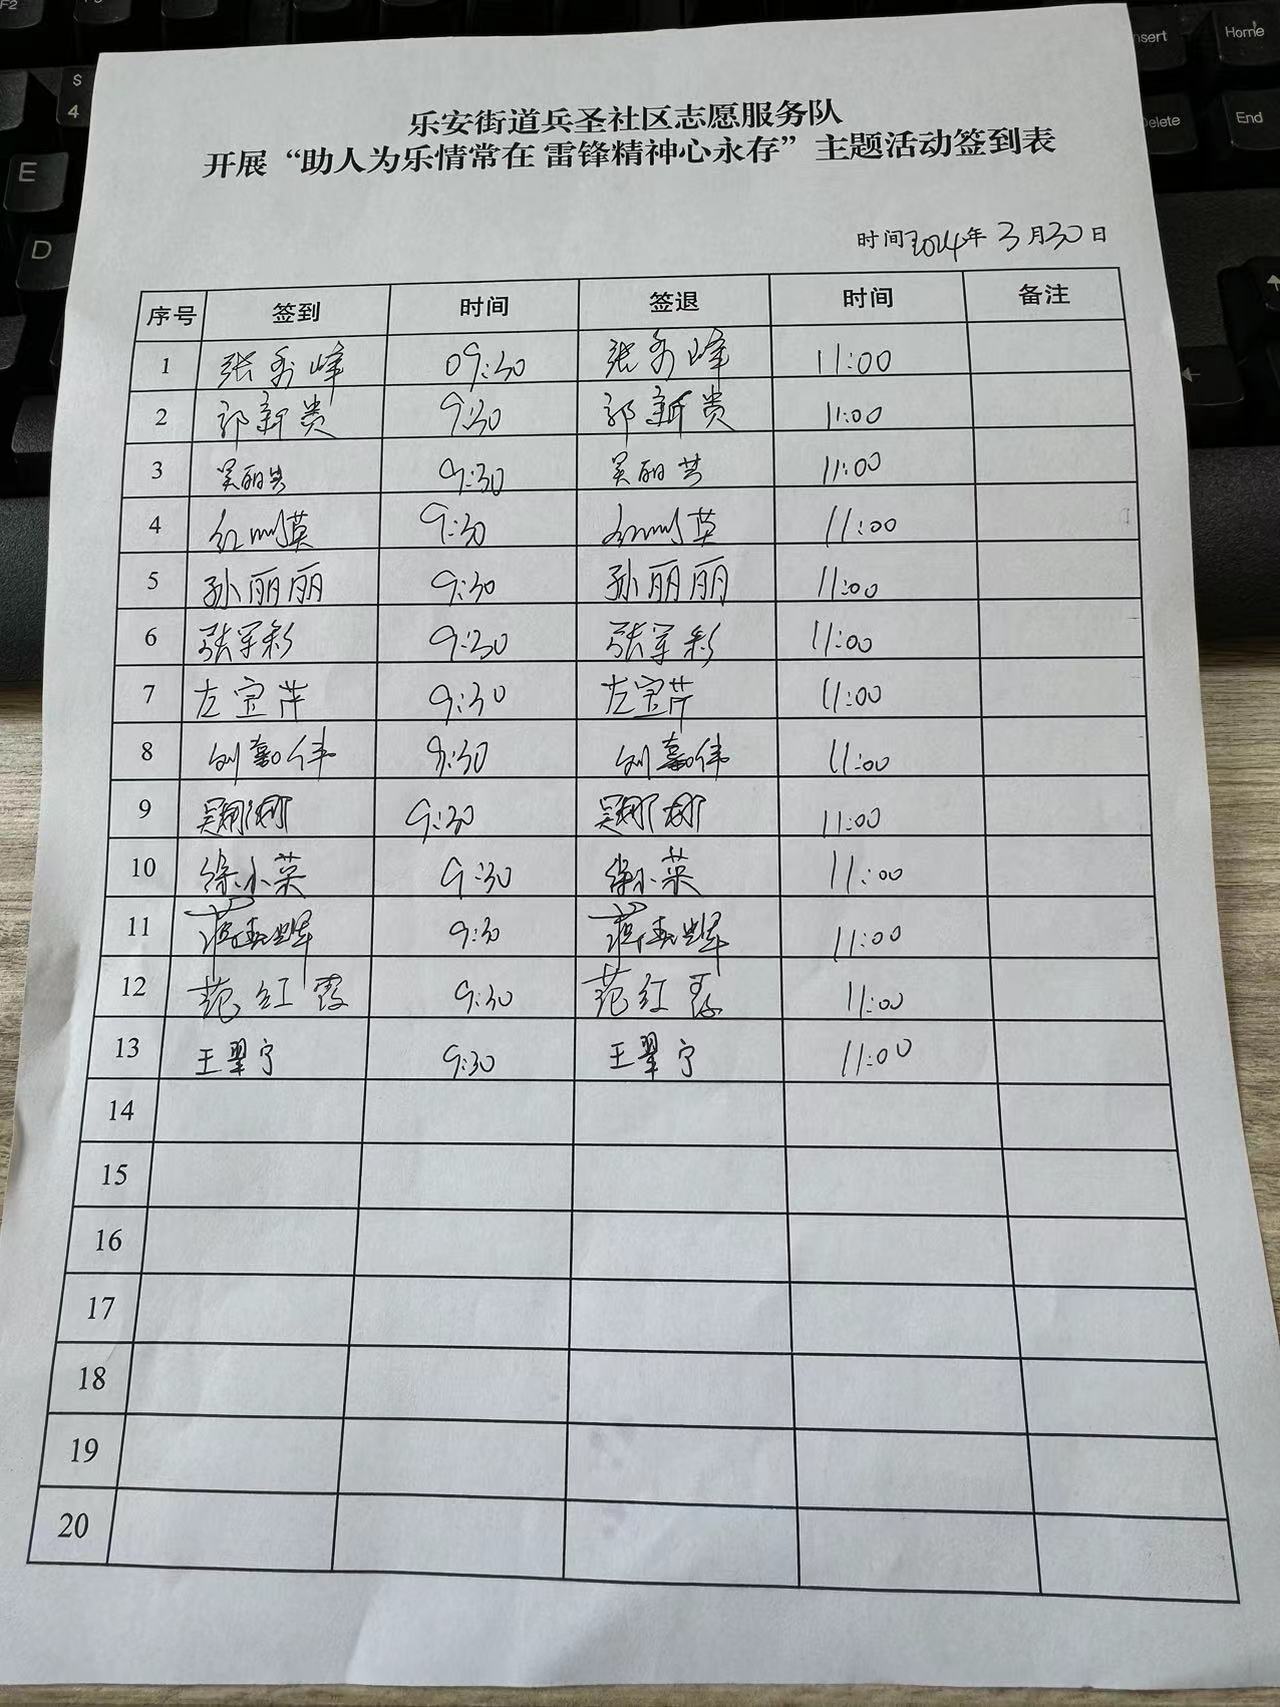 乐安街道兵圣社区志愿服务队
开展“助人为乐情常在 雷锋精神心永存”主题活动签到表
时间2024年3月30日
序号 签到 时间 签退 时间 备注
1 张秀峰 09:30 张秀峰 11:00
2 郭新贵 9:30 郭新贵 11:00
3 吴丽芸 9:30 吴丽芸 11:00
4 9:30 11:00
5 孙丽丽 9:30 孙丽丽 11:00
6 张军彩 9:30 张军彩 11:00
7 左宝萍 9:30 左宝萍 11:00
8 刘嘉伟 9:30 刘嘉伟 11:00
9 吴娜娜 9:30 吴娜娜 11:00
10 徐小英 9:30 徐小英 11:00
11 9:30 11:00
12 范红霞 9:30 范红霞 11:00
13 王翠宁 9:30 王翠宁 11:00
14
15
16
17
18
19
20
F2
$
4
E
D
Insert
Home
Delete
End